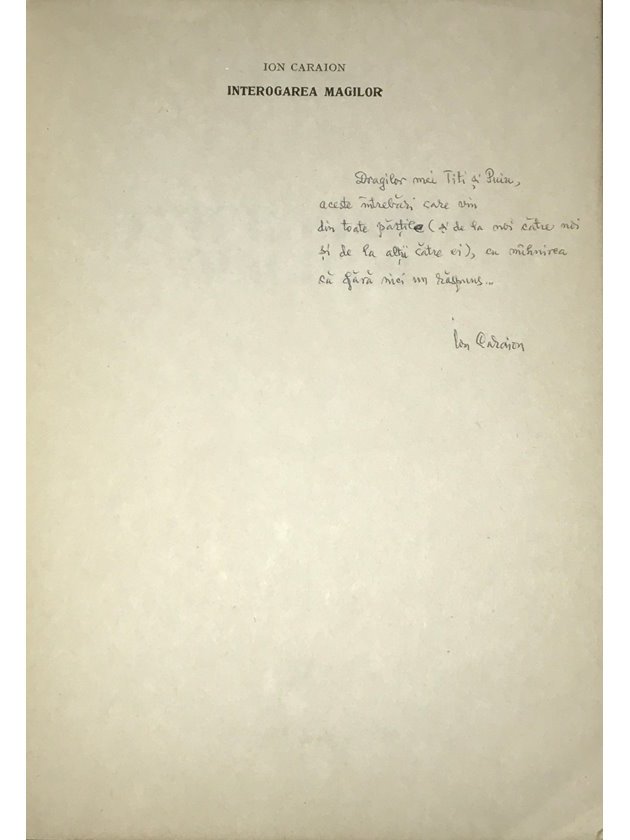 ION CARAION
INTEROGAREA MAGILOR
Dragilor mei Titi și Puiu,
aceste întrebări care vin
din toate părțile (și de la noi către noi
și de la alții către ei), cu mîhnirea
că fără nici un răspuns...
Ion Caraion